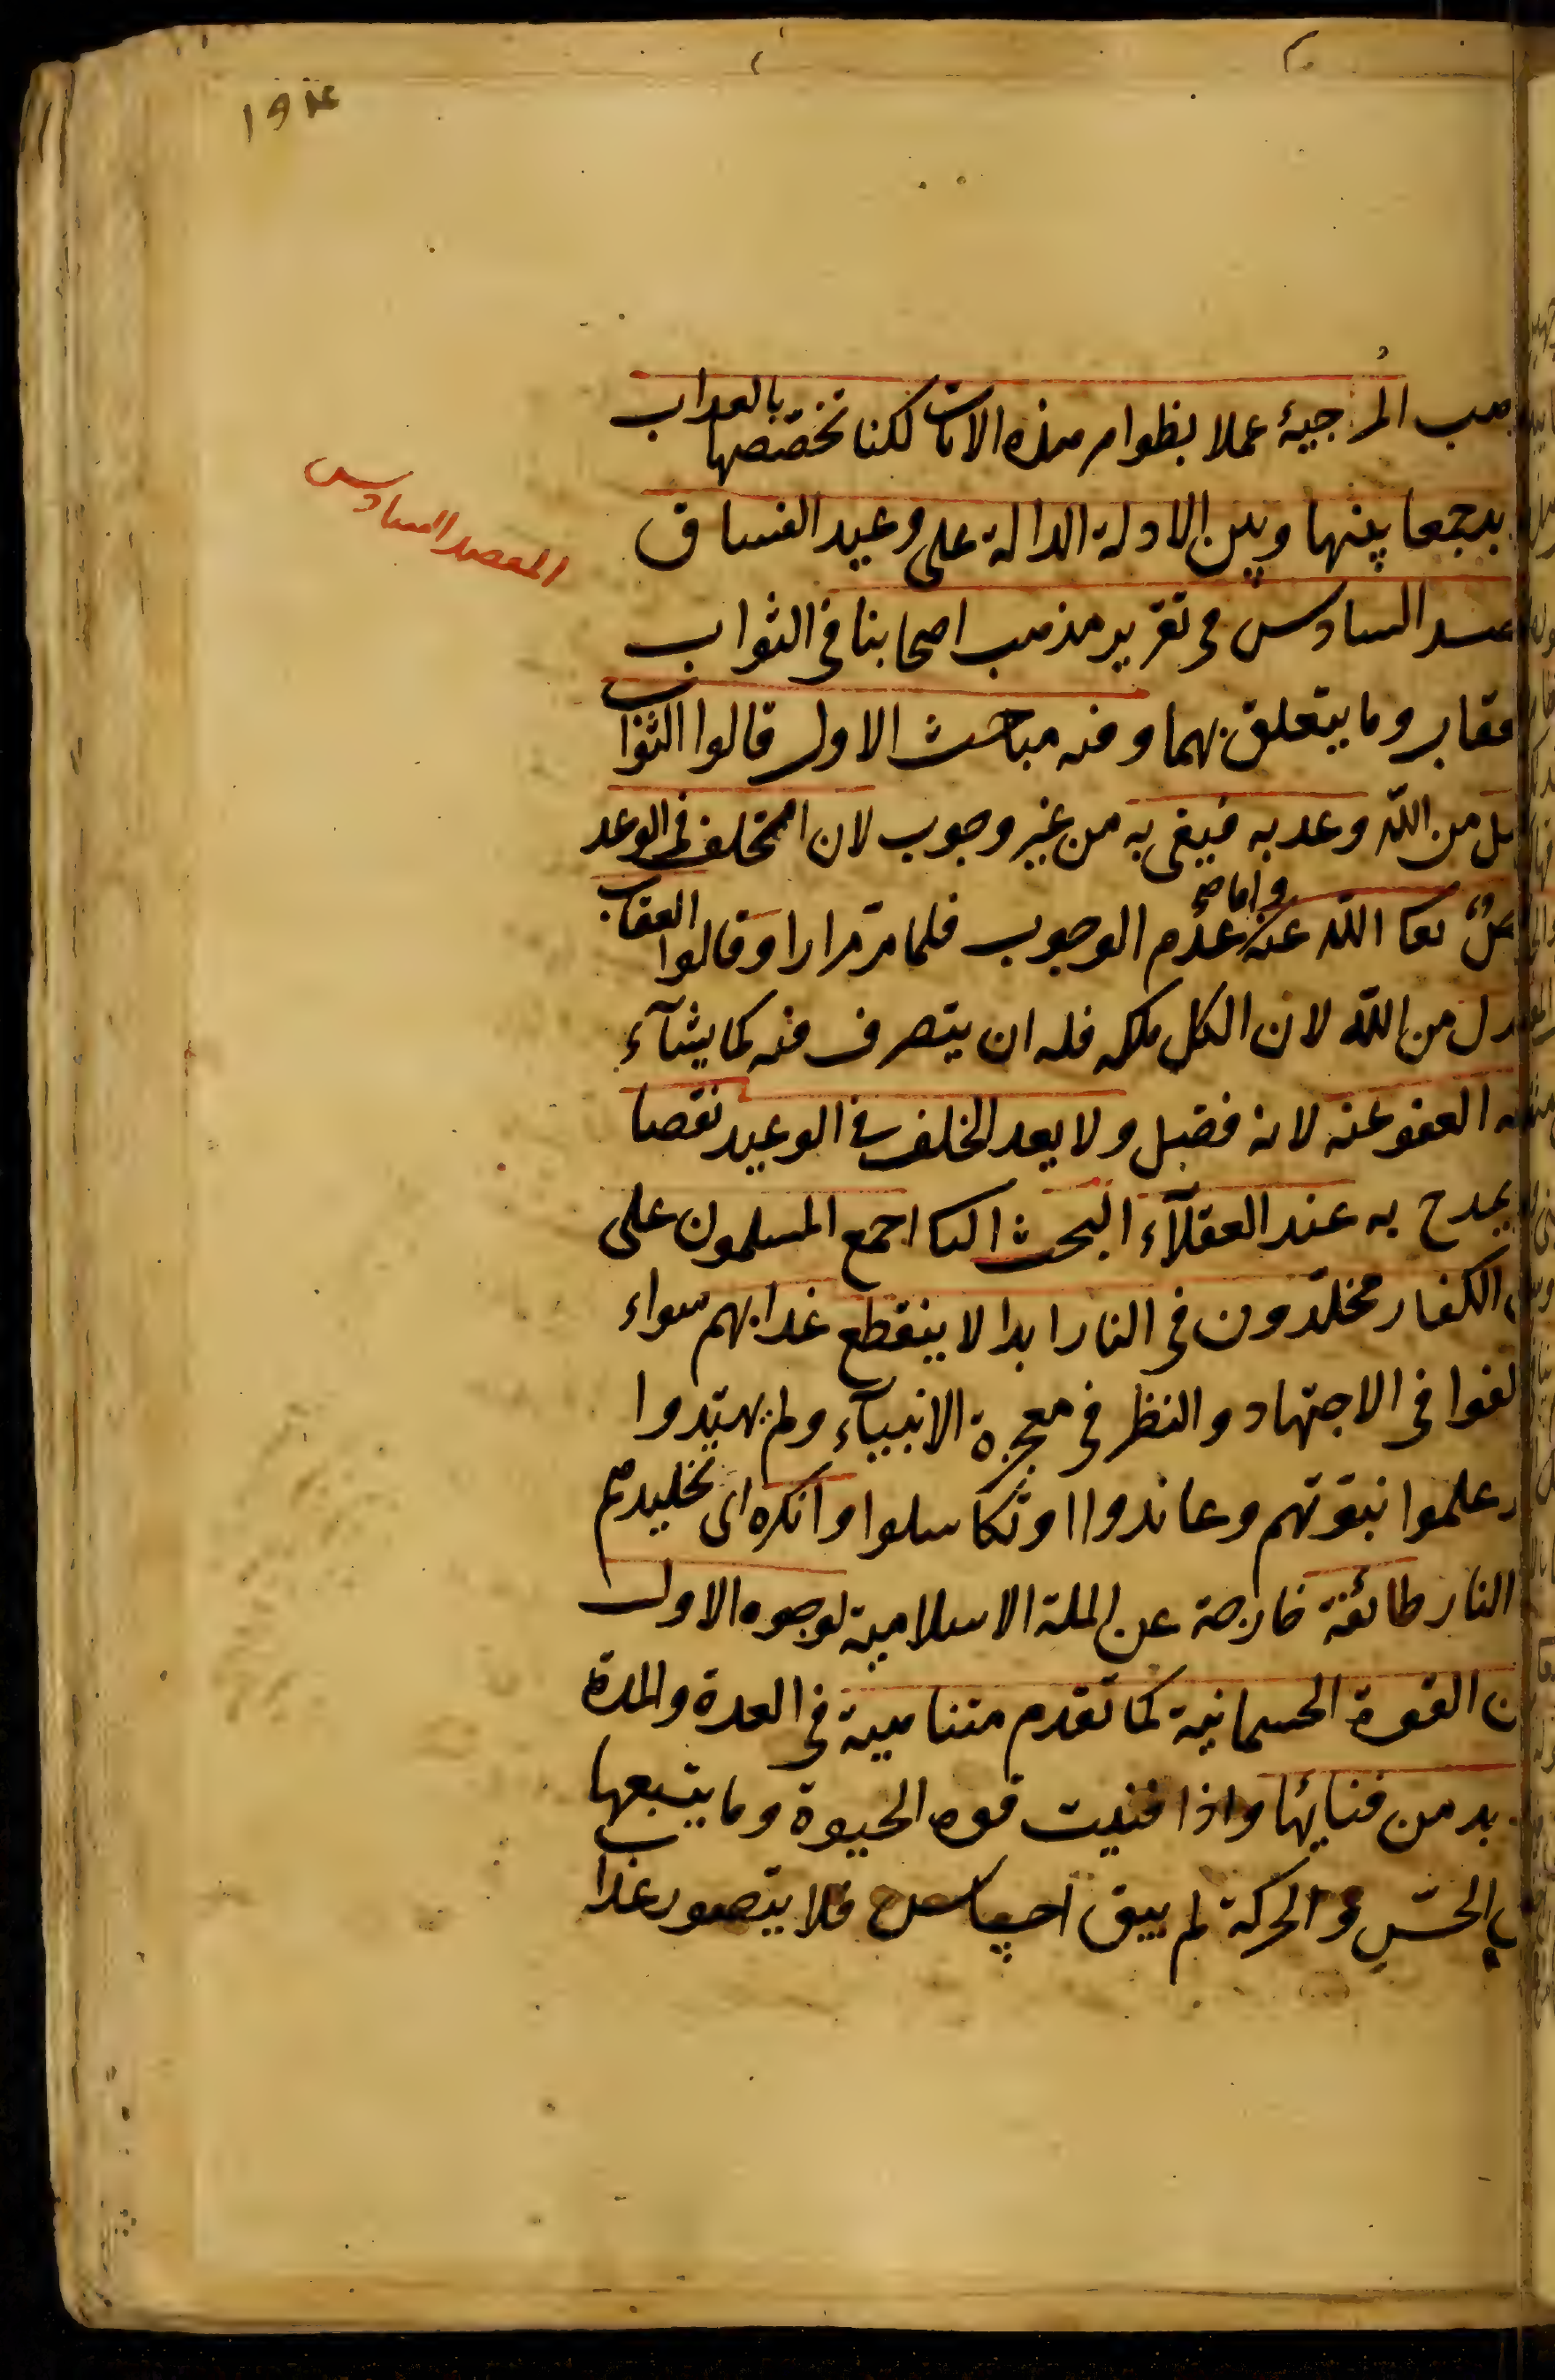 ١٩٤
المقصد السادس
المرجية عملا بظواهر هذه الايات لكنا نخصصها بالعداب
جمعا بينها وبين الادلة الدالة على وعيد الفساق
السادس فى تقرير مذهب اصحابنا فى الثواب
وما يتعلق بهما وفيه مباحث الاول قالوا الثواب
من الله وعد به فيفى به من غير وجوب لان الخلف فى الوعد
الله عنه واما عدم الوجوب فلما مر مرارا وقالوا العقاب
من الله لان الكل ملكه فله ان يتصرف فيه كما يشآء
العفو عنه لانه فضل ولا يعد الخلف فى الوعيد نقصا
يمدح به عند العقلآء البحث اجمع المسلمون على
الكفار مخلدون فى النار ابدا لا ينقطع عذابهم سواء
لغوا فى الاجتهاد والنظر فى معجزة الانبيآء ولم يهتدوا
علموا نبوتهم وعاندوا او تكاسلوا وانكره اى تخليدهم
النار طائفة خارجة عن الملة الاسلامية لوجوه الاول
القوة الجسمانية كما تقدم متناهية فى العدة والمدة
بد من فنائها واذا فنيت قوة الحيوة وما يتبعها
الحس والحركة لم يبق فلا يتصور عذاب